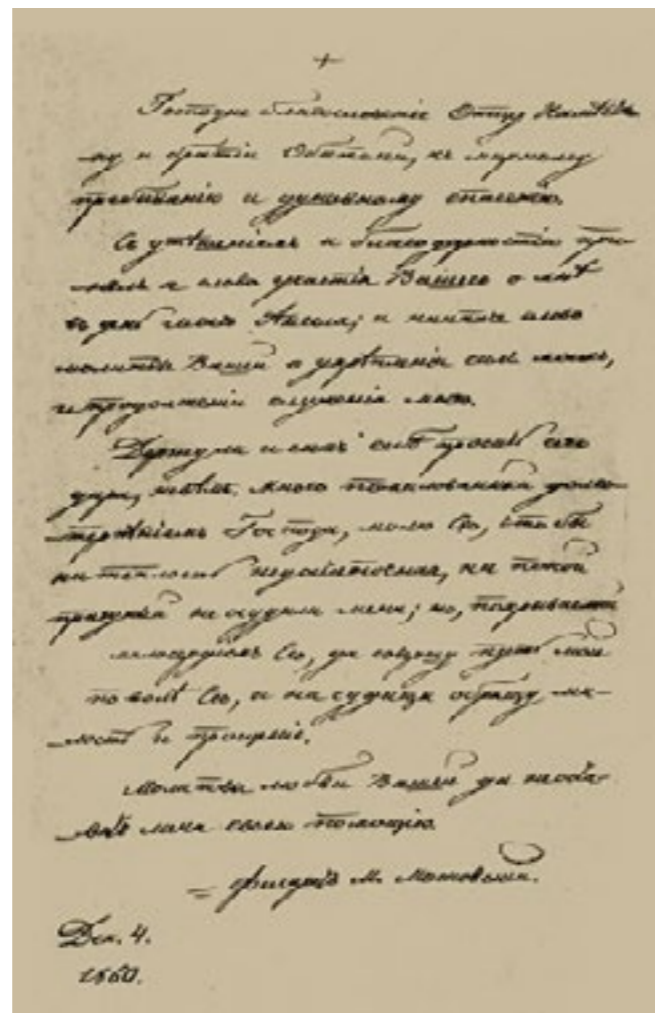 +
Господне благословеніе Отцу Намѣстни-
ку и братіи Обители, къ мирному
пребыванію и душевному спасенію.
Съ утѣшеніемъ и благодарностію при-
нялъ я слова участія Вашего о мнѣ
въ день моего Ангела; и нынѣ слово
молитвы Вашей о укрѣпленіи силъ моихъ,
и продолженіи служенія моего.
и симъ просить сего
дара, много помилованный долго-
терпѣніемъ Господа, молю Его, чтобы
ни недостаточная, ни покой
праздный не судили меня; но, покрываемый
милосердіемъ Его, да совершу путь мой
по волѣ Его, и на судищи обрящу ми-
лость и прощеніе.
Молитва любви Вашей да не оста-
витъ меня своею помощію.
Филаретъ М. Московскій.
Дек. 4.
1860.